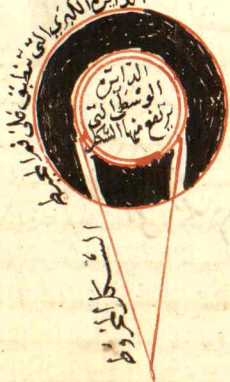 الدايرة الكبري التي تنطبق علي فم المحيط
الدايرة
الوسطي التي
يرتفع منها الشكل
الشكل المخروط